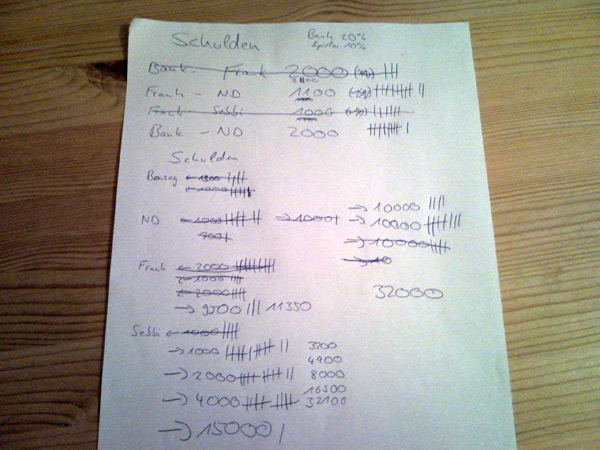 Schulden
Bank 20%
Spieler 10%
Bank - Frank 2000
Frank - ND 1100
Frank - Sebbi 1000
Bank - ND 2000
Schulden
1000
ND ← 1000 → 1000 → 10000
→ 10000
→ 10000
Frank ← 2000
← 1000
← 2000
→ 9500 11350
32000
Sebbi ← 1000
→ 1000 3200
4900
→ 2000 8000
16500
→ 4000 32100
→ 15000